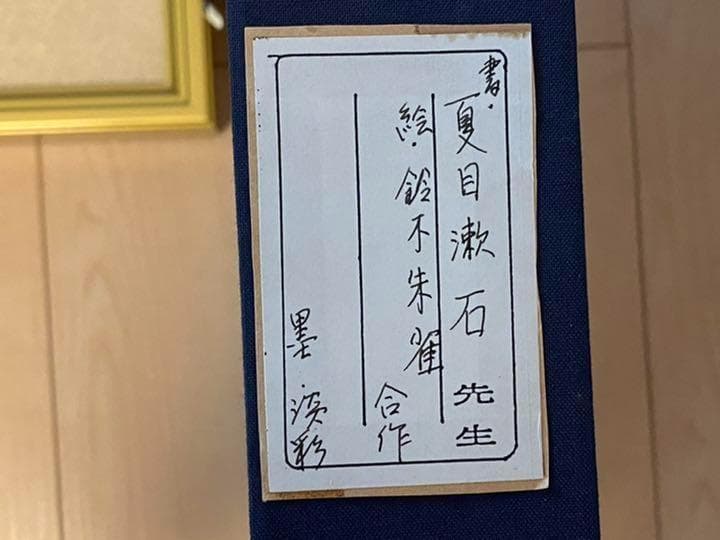 書・夏目漱石先生
絵・鈴木朱雀
合作
墨・淡彩